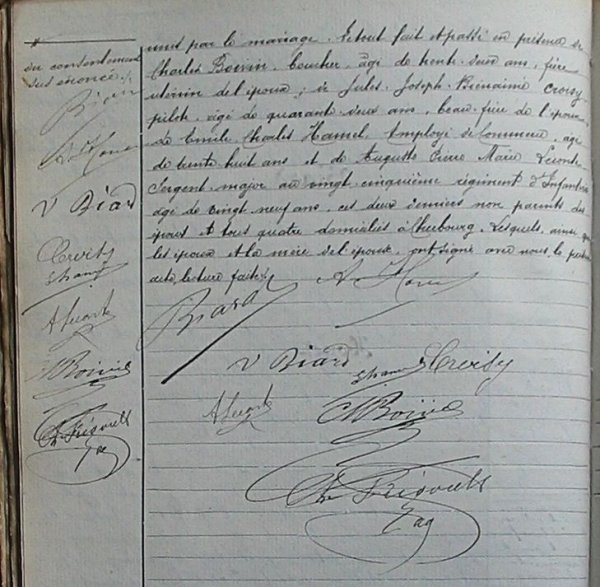 du consentement
sus énoncé.
Biard
V Biard
Croizy
A Lecont
Boivin
unis par le mariage. Le tout fait et passé en présence de
Charles Boivin, boucher, âgé de trente deux ans, frère
utérin de l'époux; de Jules Joseph Bienaimé Croizy
pilote, âgé de quarante deux ans, beau frère de l'époux
de Emile Charles Hamel, Employé de Commerce, âgé
de trente huit ans et de Auguste Pierre Marie Leconte
Sergent major au vingt cinquième régiment d'Infanterie
âgé de vingt neuf ans, ces deux derniers non parents des
époux et tous quatre domiciliés à Cherbourg. Lesquels, ainsi que
les époux et la mère de l'épouse, ont signé avec nous le présent
acte, lecture faite.
Biard
V Biard
Croizy
A Lecont
Boivin